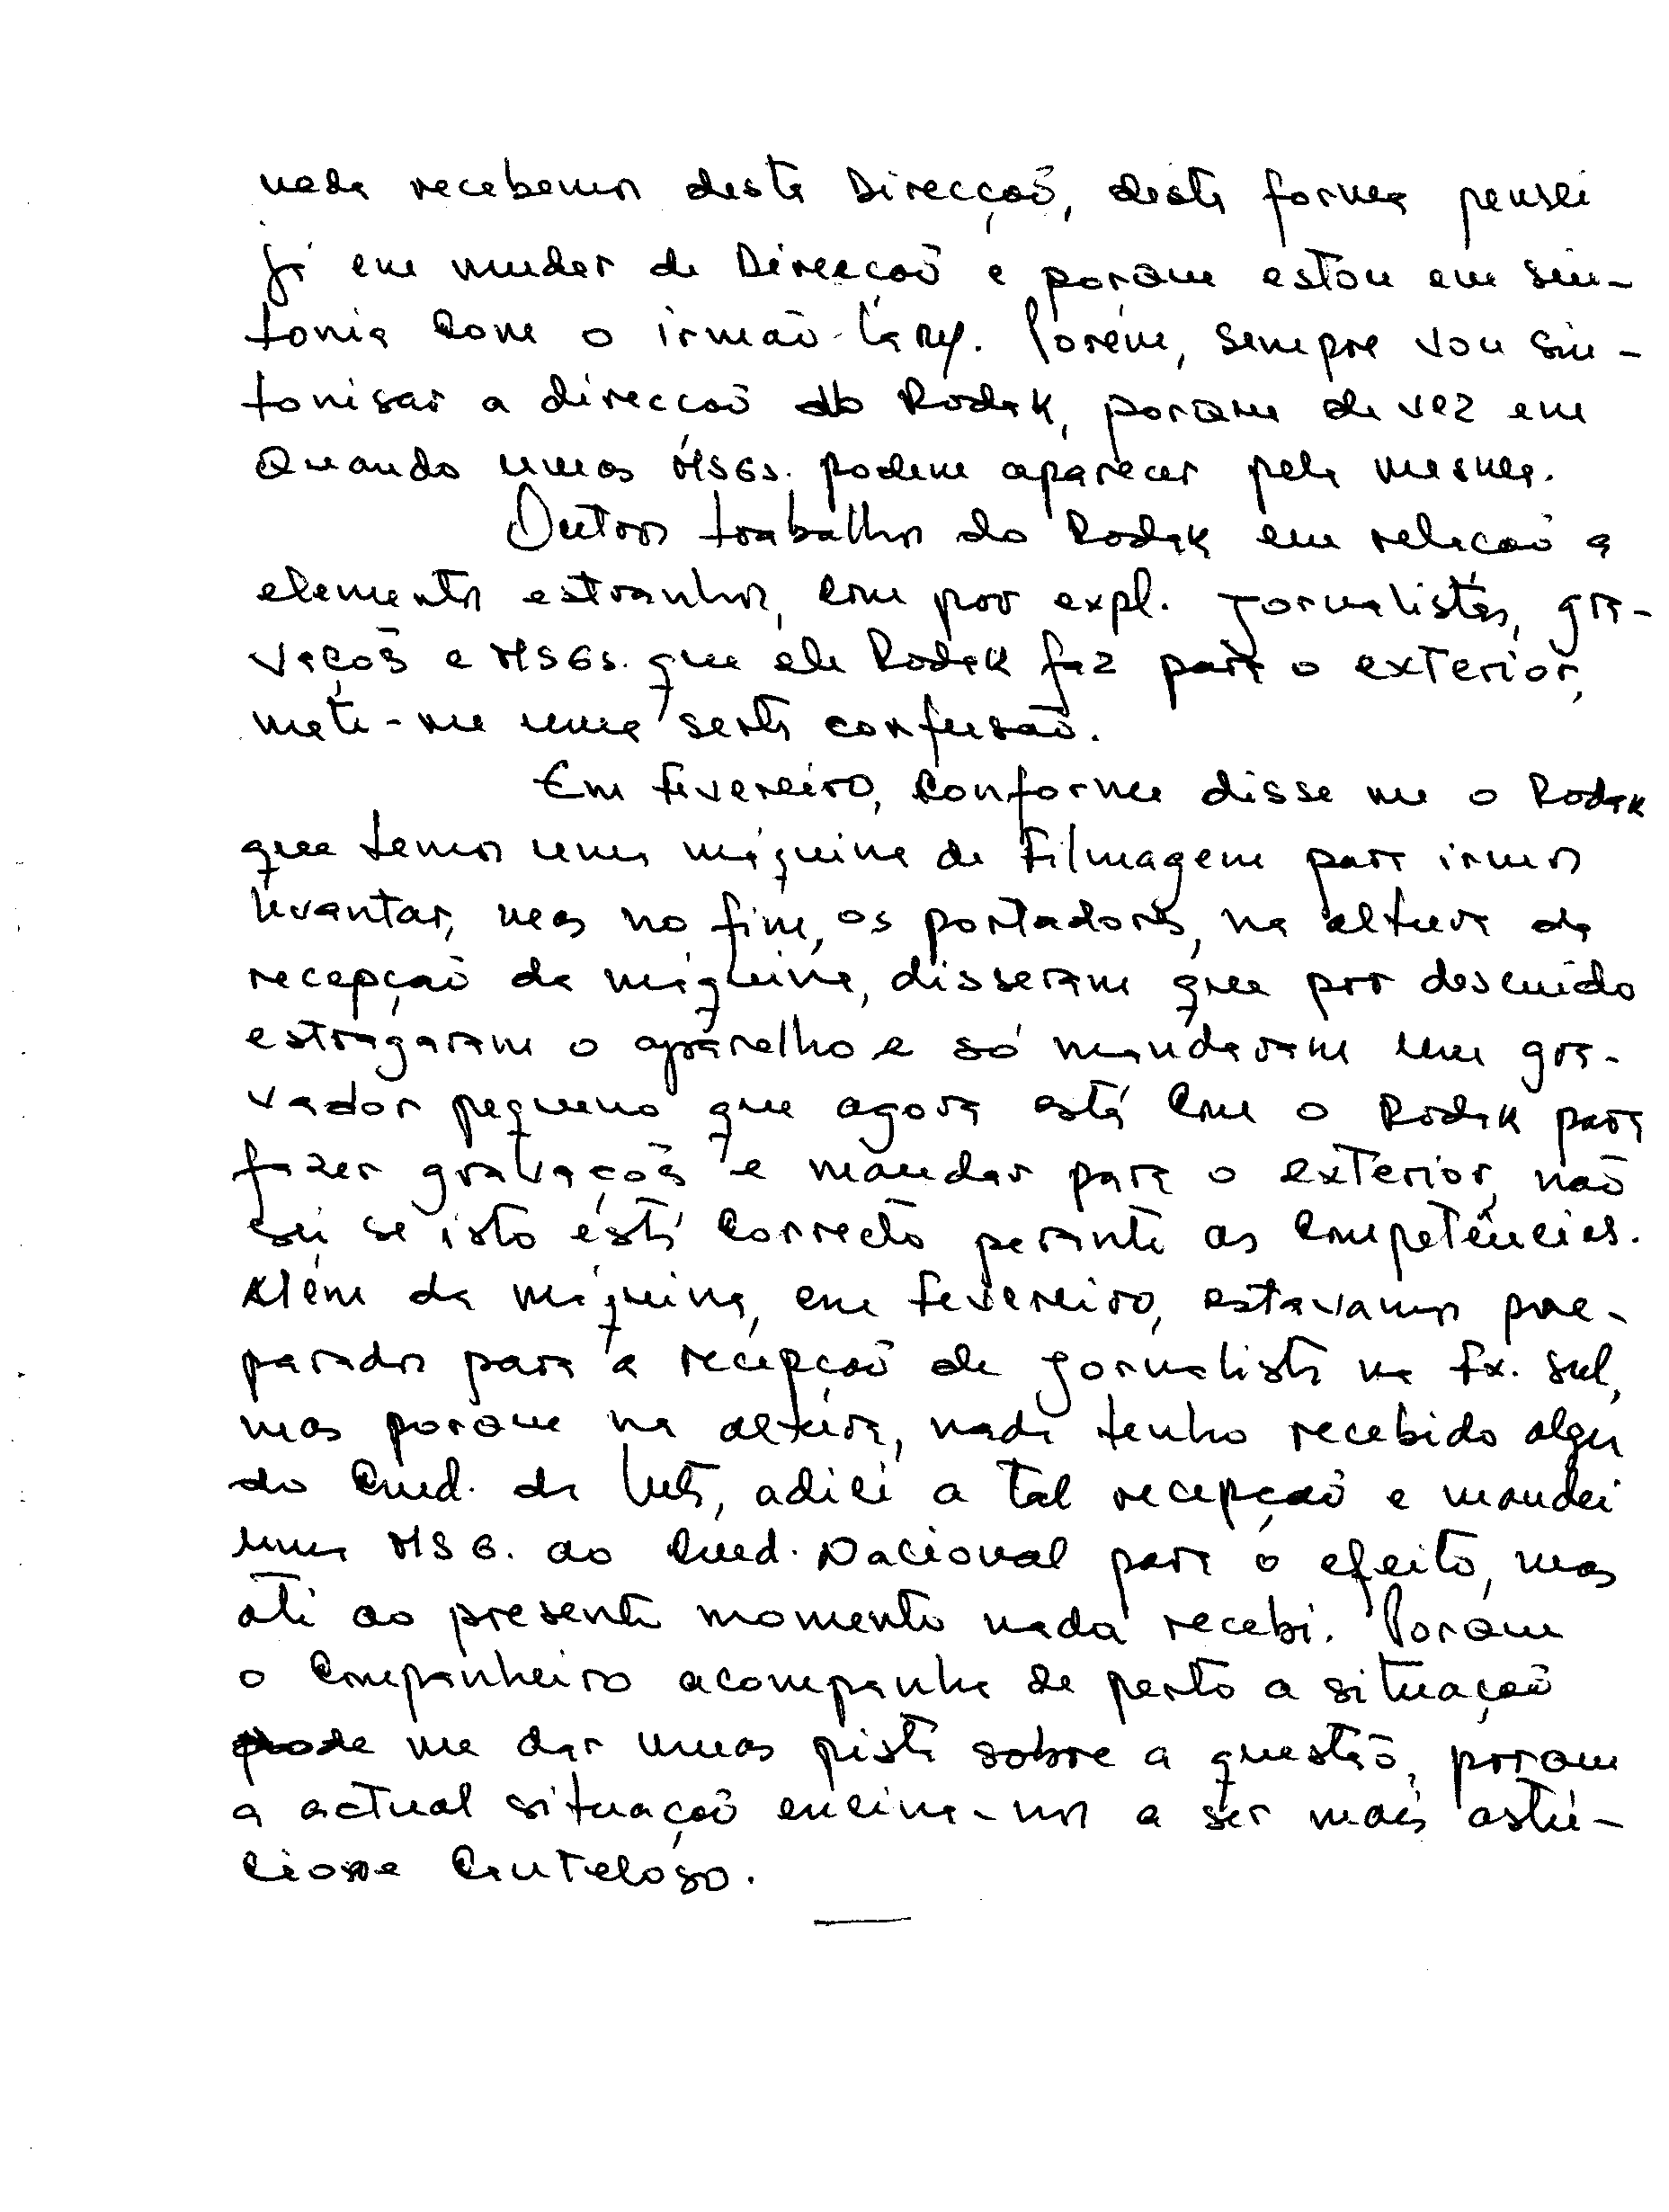 nada recebemos desta Direcção, desta forma pensei
já em mudar de Direcção e porque estou em sin-
tonia com o irmão Lary. Porém, sempre vou sin-
tonisar a direcção do Rodak, porque de vez em
Quando umas MSGs. podem aparecer pela mesma.
Outros trabalhos do Rodak em relação a
elementos estranhos, com por expl. jornalistas, gra-
vações e MSGs. que ele Rodak faz para o exterior,
mete-me uma serta confusão.
Em fevereiro, conforme disse me o Rodak
que temos uma máquina de Filmagem para irmos
levantar, mas no fim, os portadores, na altura da
recepção da máquina, disseram que por descuido
estragaram o aparelho e só mandaram um gra-
vador pequeno que agora está com o Rodak para
fazer gravações e mandar para o exterior, não
sei se isto está correcto perante as competências.
Além da máquina, em fevereiro, estavamos pre-
parados para a recepção de jornalista na fx. sul,
mas porque na altura, nada tenho recebido algu
do Cmd. da luta, adiei a tal recepção e mandei
uma MSG. ao Cmd. Nacional para o efeito, mas
até ao presente momento nada recebi. Porque
o Companheiro acompanha de perto a situação
pode me dar umas pista sobre a questão, porque
a actual situação encina-nos a ser mais astú-
cioso e Cauteloso.